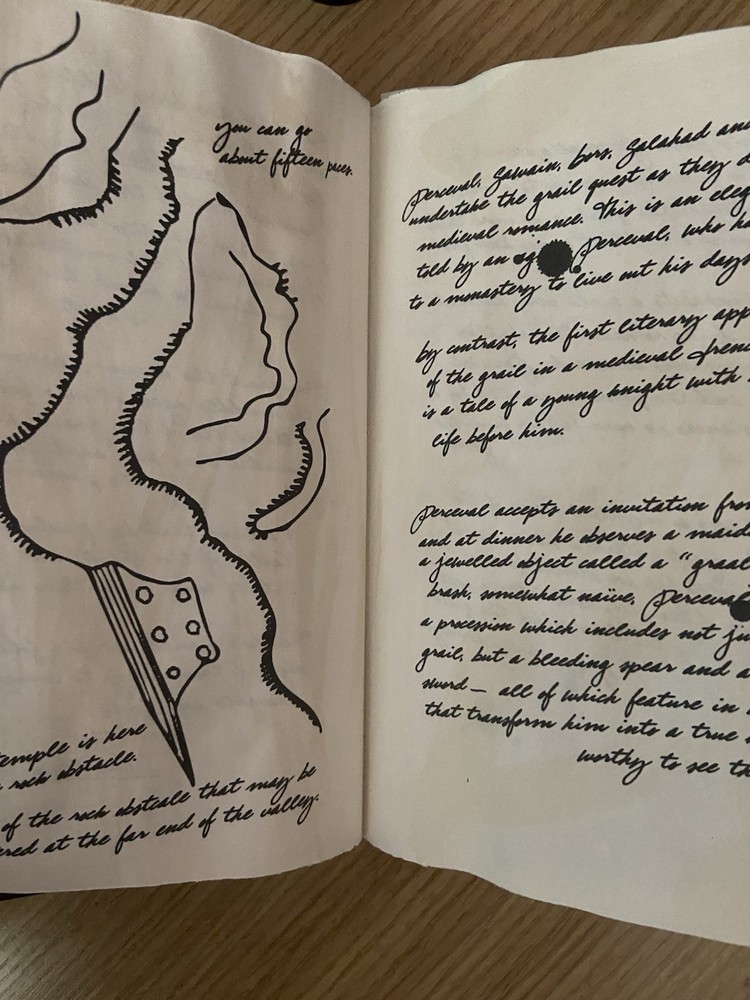 you can go
about fifteen paces.
temple is here
rock obstacle.
of the rock obstcale that may be
ered at the far end of the valley.
Perceval, Gawain, bors, Galahad and
undertake the grail quest as they d
medieval romance. This is an eleg
told by an ag Perceval, who ha
to a monastery to live out his days
by contrast, the first literary app
of the grail in a medieval Frenc
is a tale of a young knight with
life before him.
Perceval accepts an invitation from
and at dinner he observes a maide
a jewelled object called a "graal
brash, somewhat naïve, Perceval
a procession which includes not ju
grail, but a bleeding spear and a
sword — all of which feature in
that transform him into a true
worthy to see th